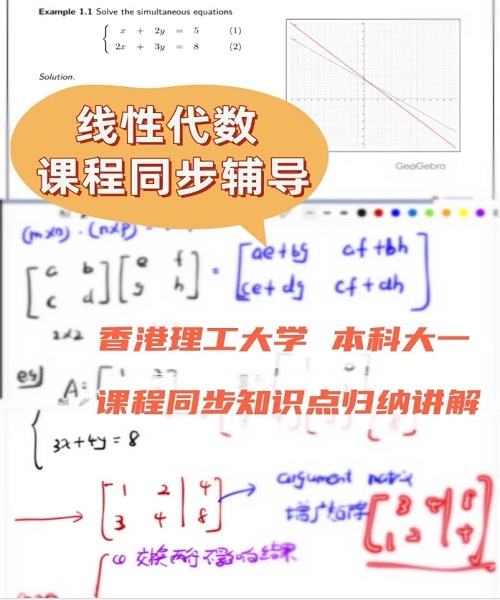 Example 1.1 Solve the simultaneous equations
x + 2y = 5 (1)
2x + 3y = 8 (2)
Solution.
GeoGebra
线性代数
课程同步辅导
(m×n)·(n×p)
[a b] [e f] = [ae+bg af+bh]
[c d] [g h] [ce+dg cf+dh]
2×2
香港理工大学 本科大一
eg)
A = [1
课程同步知识点归纳讲解
3x+4y=8
[1 2 | 4]
[3 4 | 8]
argument matrix
增广矩阵
[3 4 | 8]
[1 2 | 4]
① 交换两行不影响结果